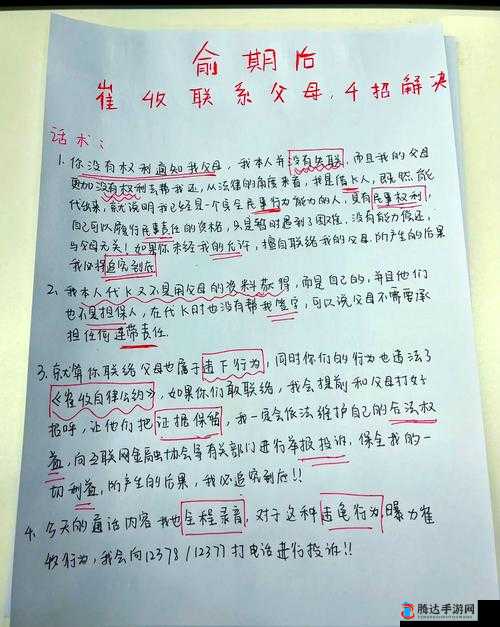 俞期后
崔收联系父母,4招解决
话术:
1. 你没有权利通知我父母,我本人并没有失联,而且我的父母
更加没有权利去帮我还,从法律的角度来看,我是借K人,既然能
代出来,就说明我已经是一个完全民事行为能力的人,具有民事权利,
自己可以履行民事责任的资格,只是暂时遇到了困难,没有能力偿还,
与父母无关!如果你未经我的允许,擅自联络我的父母,所产生的后果
我必将追究到底
2、我本人代K又不是用父母的资料获得,而是自己的,并且他们
也不是担保人,在代K时也没有帮我签字,可以说父母不需要承
担任何连带责任.
3.就算你联络父母也属于违下行为,同时你们的行为也违法了
《崔收自律公约》,如果你们敢联络,我会提前和父母打好
招呼,让他们把证据保留,我一定会依法维护自己的合法权
益,向互联网金融协会等有关部门进行举报投诉,保全我的一
切利益,所产生的后果,我必追究到底!!
4、今天的通话内容我也全程录音,对于这种违龟行为,曝力崔
收行为,我会向12378/12377打电话进行投诉!!
腾达手游网